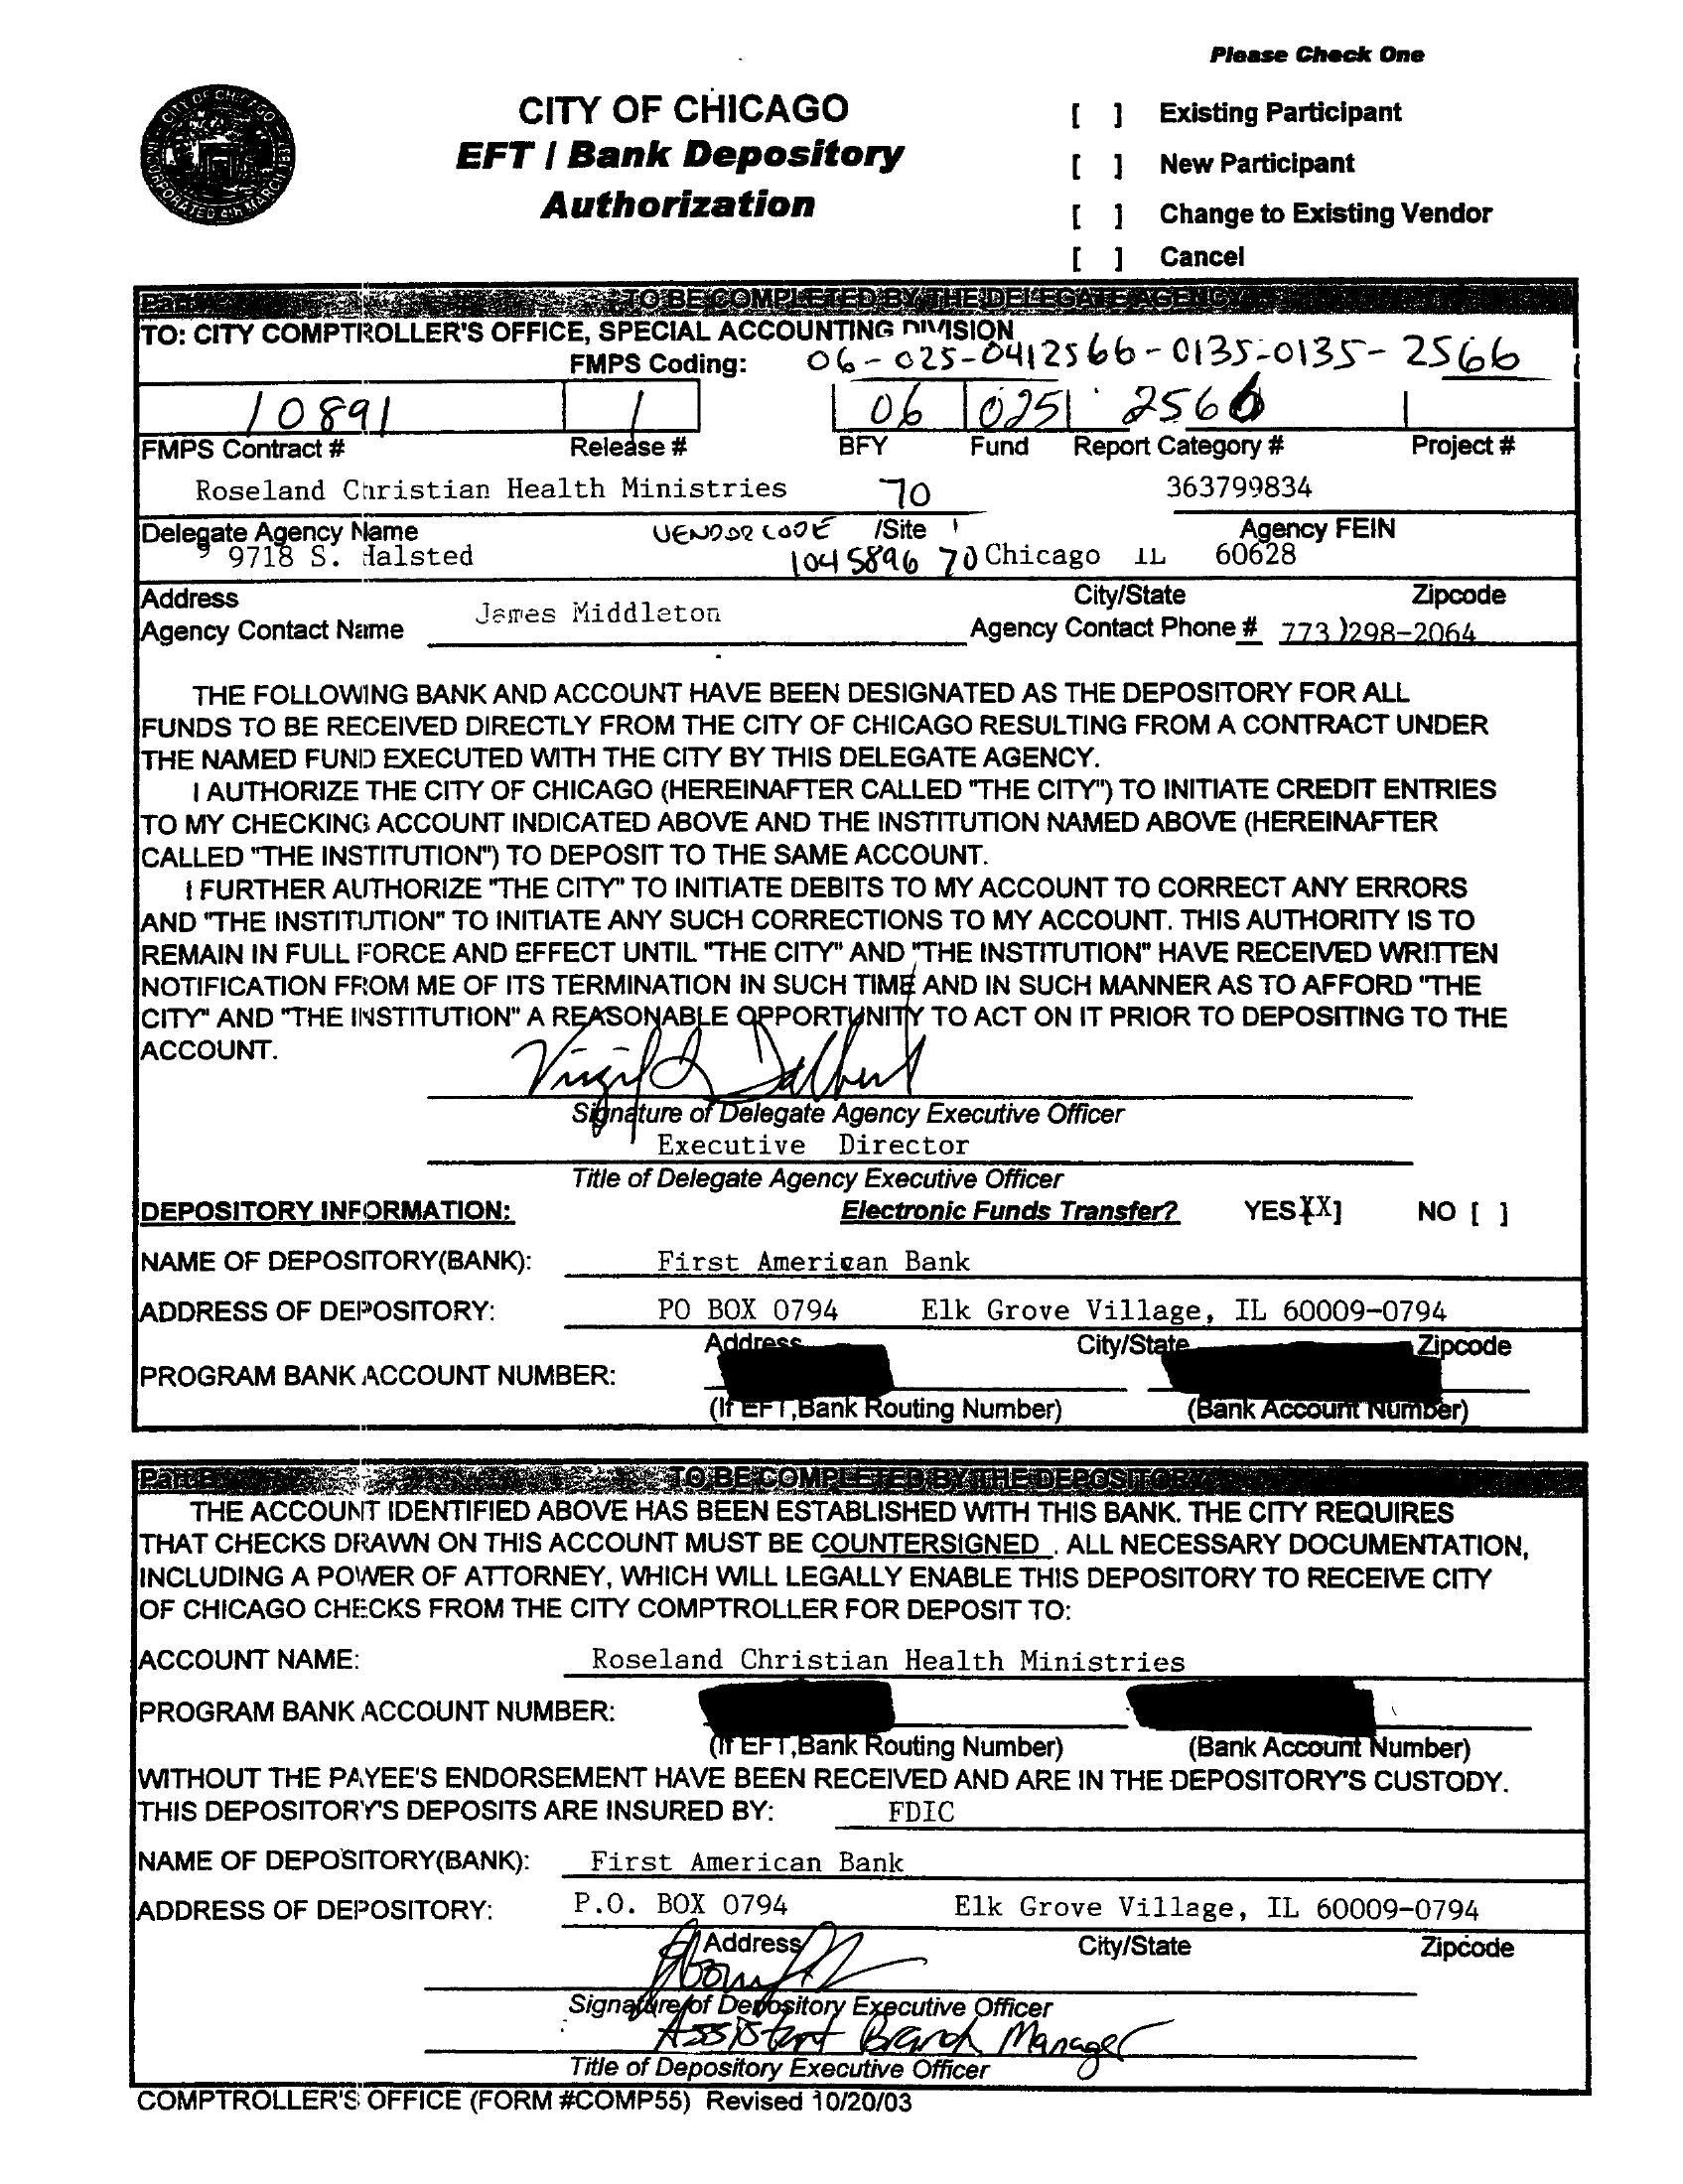 Please Check One
CITY OF CHICAGO
EFT / Bank Depository
Authorization
[ ] Existing Participant
[ ] New Participant
[ ] Change to Existing Vendor
[ ] Cancel
CITY OF CHICAGO INCORPORATED 4th MARCH 1837
Part A TO BE COMPLETED BY THE DELEGATE AGENCY
TO: CITY COMPTROLLER'S OFFICE, SPECIAL ACCOUNTING DIVISION
FMPS Coding: 06-025-0412566-0135-0135-2566
10891 1 06 025 2566
FMPS Contract # Release # BFY Fund Report Category # Project #
Roseland Christian Health Ministries 70 363799834
Delegate Agency Name VENDOR CODE /Site Agency FEIN
9718 S. Halsted 1045896 70 Chicago IL 60628
Address City/State Zipcode
Agency Contact Name James Middleton Agency Contact Phone # 773 )298-2064
THE FOLLOWING BANK AND ACCOUNT HAVE BEEN DESIGNATED AS THE DEPOSITORY FOR ALL
FUNDS TO BE RECEIVED DIRECTLY FROM THE CITY OF CHICAGO RESULTING FROM A CONTRACT UNDER
THE NAMED FUND EXECUTED WITH THE CITY BY THIS DELEGATE AGENCY.
I AUTHORIZE THE CITY OF CHICAGO (HEREINAFTER CALLED "THE CITY") TO INITIATE CREDIT ENTRIES
TO MY CHECKING ACCOUNT INDICATED ABOVE AND THE INSTITUTION NAMED ABOVE (HEREINAFTER
CALLED "THE INSTITUTION") TO DEPOSIT TO THE SAME ACCOUNT.
I FURTHER AUTHORIZE "THE CITY" TO INITIATE DEBITS TO MY ACCOUNT TO CORRECT ANY ERRORS
AND "THE INSTITUTION" TO INITIATE ANY SUCH CORRECTIONS TO MY ACCOUNT. THIS AUTHORITY IS TO
REMAIN IN FULL FORCE AND EFFECT UNTIL "THE CITY" AND "THE INSTITUTION" HAVE RECEIVED WRITTEN
NOTIFICATION FROM ME OF ITS TERMINATION IN SUCH TIME AND IN SUCH MANNER AS TO AFFORD "THE
CITY" AND "THE INSTITUTION" A REASONABLE OPPORTUNITY TO ACT ON IT PRIOR TO DEPOSITING TO THE
ACCOUNT.
Signature of Delegate Agency Executive Officer
Executive Director
Title of Delegate Agency Executive Officer
DEPOSITORY INFORMATION: Electronic Funds Transfer? YES[XX] NO [ ]
NAME OF DEPOSITORY(BANK): First American Bank
ADDRESS OF DEPOSITORY: PO BOX 0794 Elk Grove Village, IL 60009-0794
Address City/State Zipcode
PROGRAM BANK ACCOUNT NUMBER:
(If EFT,Bank Routing Number) (Bank Account Number)
Part B TO BE COMPLETED BY THE DEPOSITORY
THE ACCOUNT IDENTIFIED ABOVE HAS BEEN ESTABLISHED WITH THIS BANK. THE CITY REQUIRES
THAT CHECKS DRAWN ON THIS ACCOUNT MUST BE COUNTERSIGNED . ALL NECESSARY DOCUMENTATION,
INCLUDING A POWER OF ATTORNEY, WHICH WILL LEGALLY ENABLE THIS DEPOSITORY TO RECEIVE CITY
OF CHICAGO CHECKS FROM THE CITY COMPTROLLER FOR DEPOSIT TO:
ACCOUNT NAME: Roseland Christian Health Ministries
PROGRAM BANK ACCOUNT NUMBER:
(If EFT,Bank Routing Number) (Bank Account Number)
WITHOUT THE PAYEE'S ENDORSEMENT HAVE BEEN RECEIVED AND ARE IN THE DEPOSITORY'S CUSTODY.
THIS DEPOSITORY'S DEPOSITS ARE INSURED BY: FDIC
NAME OF DEPOSITORY(BANK): First American Bank
ADDRESS OF DEPOSITORY: P.O. BOX 0794 Elk Grove Village, IL 60009-0794
Address City/State Zipcode
Signature of Depository Executive Officer
Assistant Branch Manager
Title of Depository Executive Officer
COMPTROLLER'S OFFICE (FORM #COMP55) Revised 10/20/03